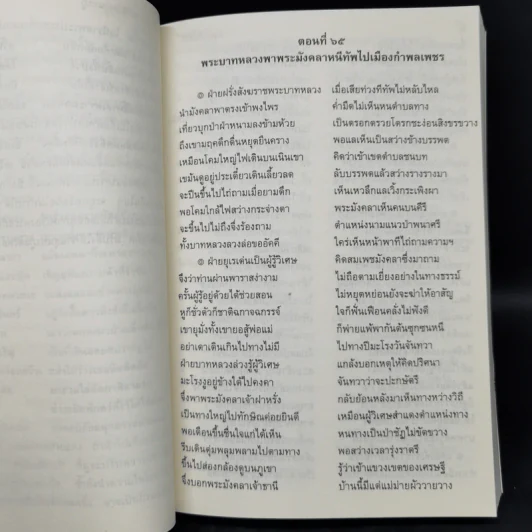 ตอนที่ ๖๕
พระบาทหลวงพาพระมังคลาหนีทัพไปเมืองกำพลเพชร
๏ ฝ่ายฝรั่งสังฆราชพระบาทหลวง เมื่อเสียท่วงทีทัพไม่หลับไหล
นำมังคลาพาตรงเข้าพงไพร ค่ำมืดไม่เห็นหนตำบลทาง
เที่ยวบุกป่าฝ่าหนามลงข้ามห้วย เป็นตรอกตรวยโตรกชะง่อนสิงขรขวาง
ถึงเขามฤคดึกดื่นหยุดยืนคราง พอแลเห็นเป็นสว่างข้างบรรพต
เหมือนโคมใหญ่ไฟเดินบนเนินเขา คิดว่าเข้าเขตตำบลชนบท
เขม้นดูอยู่ประเดี๋ยวเดินเลี้ยวลด ลับบรรพตแล้วสว่างรางรางมา
จะปีนขึ้นไปไถ่ถามเมื่อยามดึก เห็นเหวลึกแลเวิ้งกระเพิงผา
พอโคมใกล้ไฟสว่างกระจ่างตา พระมังคลาเห็นคนบนคีรี
จะขึ้นไปไม่ถึงจึ่งร้องถาม ตำแหน่งนามแนวป่าพนาศรี
ทั้งบาทหลวงลวงล่อขออัคคี ใคร่เห็นหน้าพาทีไถ่ถามความฯ
๏ ฝ่ายยุเรเด่นเป็นผู้รู้วิเศษ คิดสมเพชมังคลาซึ่งมาถาม
จึงว่าท่านผ่านพาราสง่างาม ไม่ถือตามเยี่ยงอย่างในทางธรรม์
ครั้นผู้รู้อยู่ด้วยได้ช่วยสอน ไม่หยุดหย่อนยังจะฆ่าให้อาสัญ
หูก็ชั่วตัวก็ชาติฉกาจฉกรรจ์ ใจก็ฟั่นเฟือนคลั่งไม่ฟังดี
เขายุมั่งทั้งเขายอสู้พ่อแม่ ก็พ่ายแพ้พากันดันซุกซนหนี
อย่าเดาเดินเกินไปทางไม่มี ไปทางปีมะโรงวันจันทวา
ฝ่ายบาทหลวงล่วงรู้ผู้วิเศษ แกสังเกตเหตุให้คิดปริศนา
มะโรงงูอยู่ข้างใต้ไปคงคา จันทวาว่าจะปะกษัตรี
จึ่งพาพระมังคลาเจ้าฝาหรั่ง กลับย้อนหลังมาเห็นทางหว่างวิถี
เป็นทางใหญ่ไปทักษิณค่อยยินดี เหมือนผู้วิเศษสำแดงตำแหน่งทาง
พอเดือนขึ้นชื่นใจแก่ได้เห็น หนทางเป็นป่าชัฏไม่ขัดขวาง
รีบเดินดุ่มพลุมพลามไปตามทาง พอสว่างเวลารุ่งราตรี
ขึ้นไปส่องกล้องดูบนภูเขา รู้ว่าเข้าแขวงเขตของเศรษฐี
จึ่งบอกพระมังคลาเจ้าธานี บ้านนี้มีแต่แม่ม่ายผัววายวาง